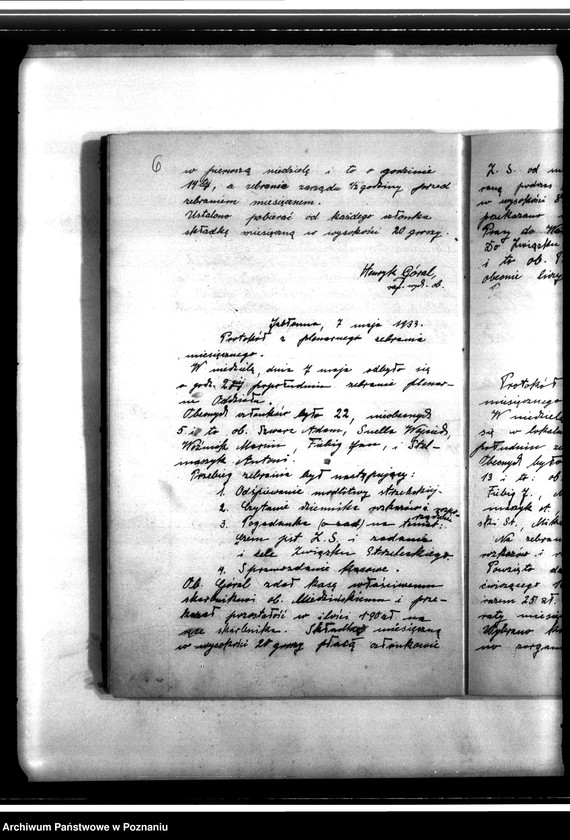 6
w pierwszą niedzielę i to o godzinie
a zebranie zarządu ½ godziny przed
zebraniem miesięcznem.
Ustalono pobierać od każdego członka
składkę miesięczną w wysokości 20 groszy.
Henryk Góral,
ref. wych. ob.
Jabłonna, 7 maja 1933.
Protokół z plenarnego zebrania
miesięcznego.
W niedzielę, dnia 7 maja odbyło się
o godz. popołudniu zebranie plenar-
ne Oddziału.
Obecnych członków było 22, nieobecnych
5 i to ob. Szwarc Adam, Snella Wojciech,
Woźniak Marcin, Fiebig Jan, i
Antoni.
Przebieg zebrania był następujący:
1. Odśpiewanie modlitwy strzeleckiej.
2. Czytanie dziennika rozkazów i rozpo-
rządzeń
3. Pogadanka (o zad) na temat:
Czem jest Z.S. i zadania
i cele Związku Strzeleckiego.
4. Sprawozdanie kasowe.
Ob. Góral zdał kasę właściwemu
skarbnikowi ob. i prze-
kazał pozostałość w ilości 1,90 zł na
ręce skarbnika. Składkę miesięczną
w wysokości 20 groszy płacą członkowie
Z. S. od
raną podczas
w wysokości
przekazano
Prasy do
Do Związku
i to ob.
obecnie liczy
Protokół
miesięcznego
W niedzielę
się w lokalu
południu
Obecnych było
13 i t. ob.
Fiebig J.,
ski St.,
Na zebran
rozkazów i
Powzięto
ćwiczącego
razem 25 zł.
raty miesię
Wybrano
no zorgan
Archiwum Państwowe w Poznaniu